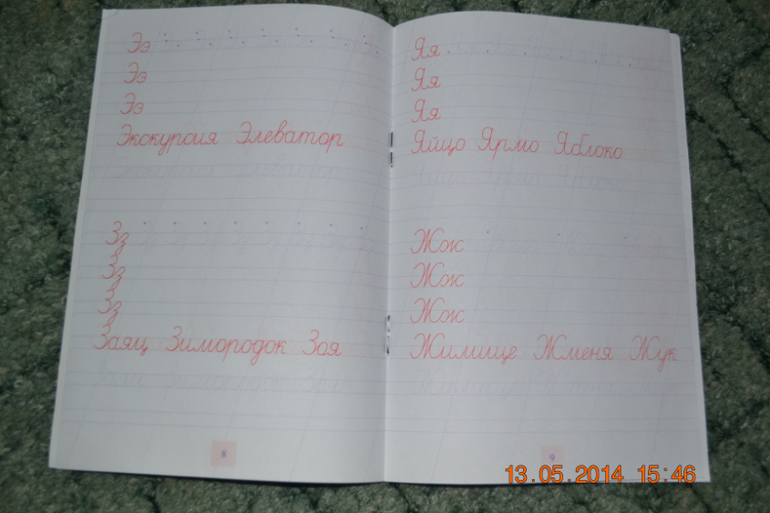 Ээ
Ээ
Ээ
Экскурсия Элеватор
Зз
Зз
Зз
Заяц Зимородок Зоя
8
Яя
Яя
Яя
Яйцо Ярмо Яблоко
Жж
Жж
Жж
Жилище Жменя Жук
9
13.05.2014 15:46